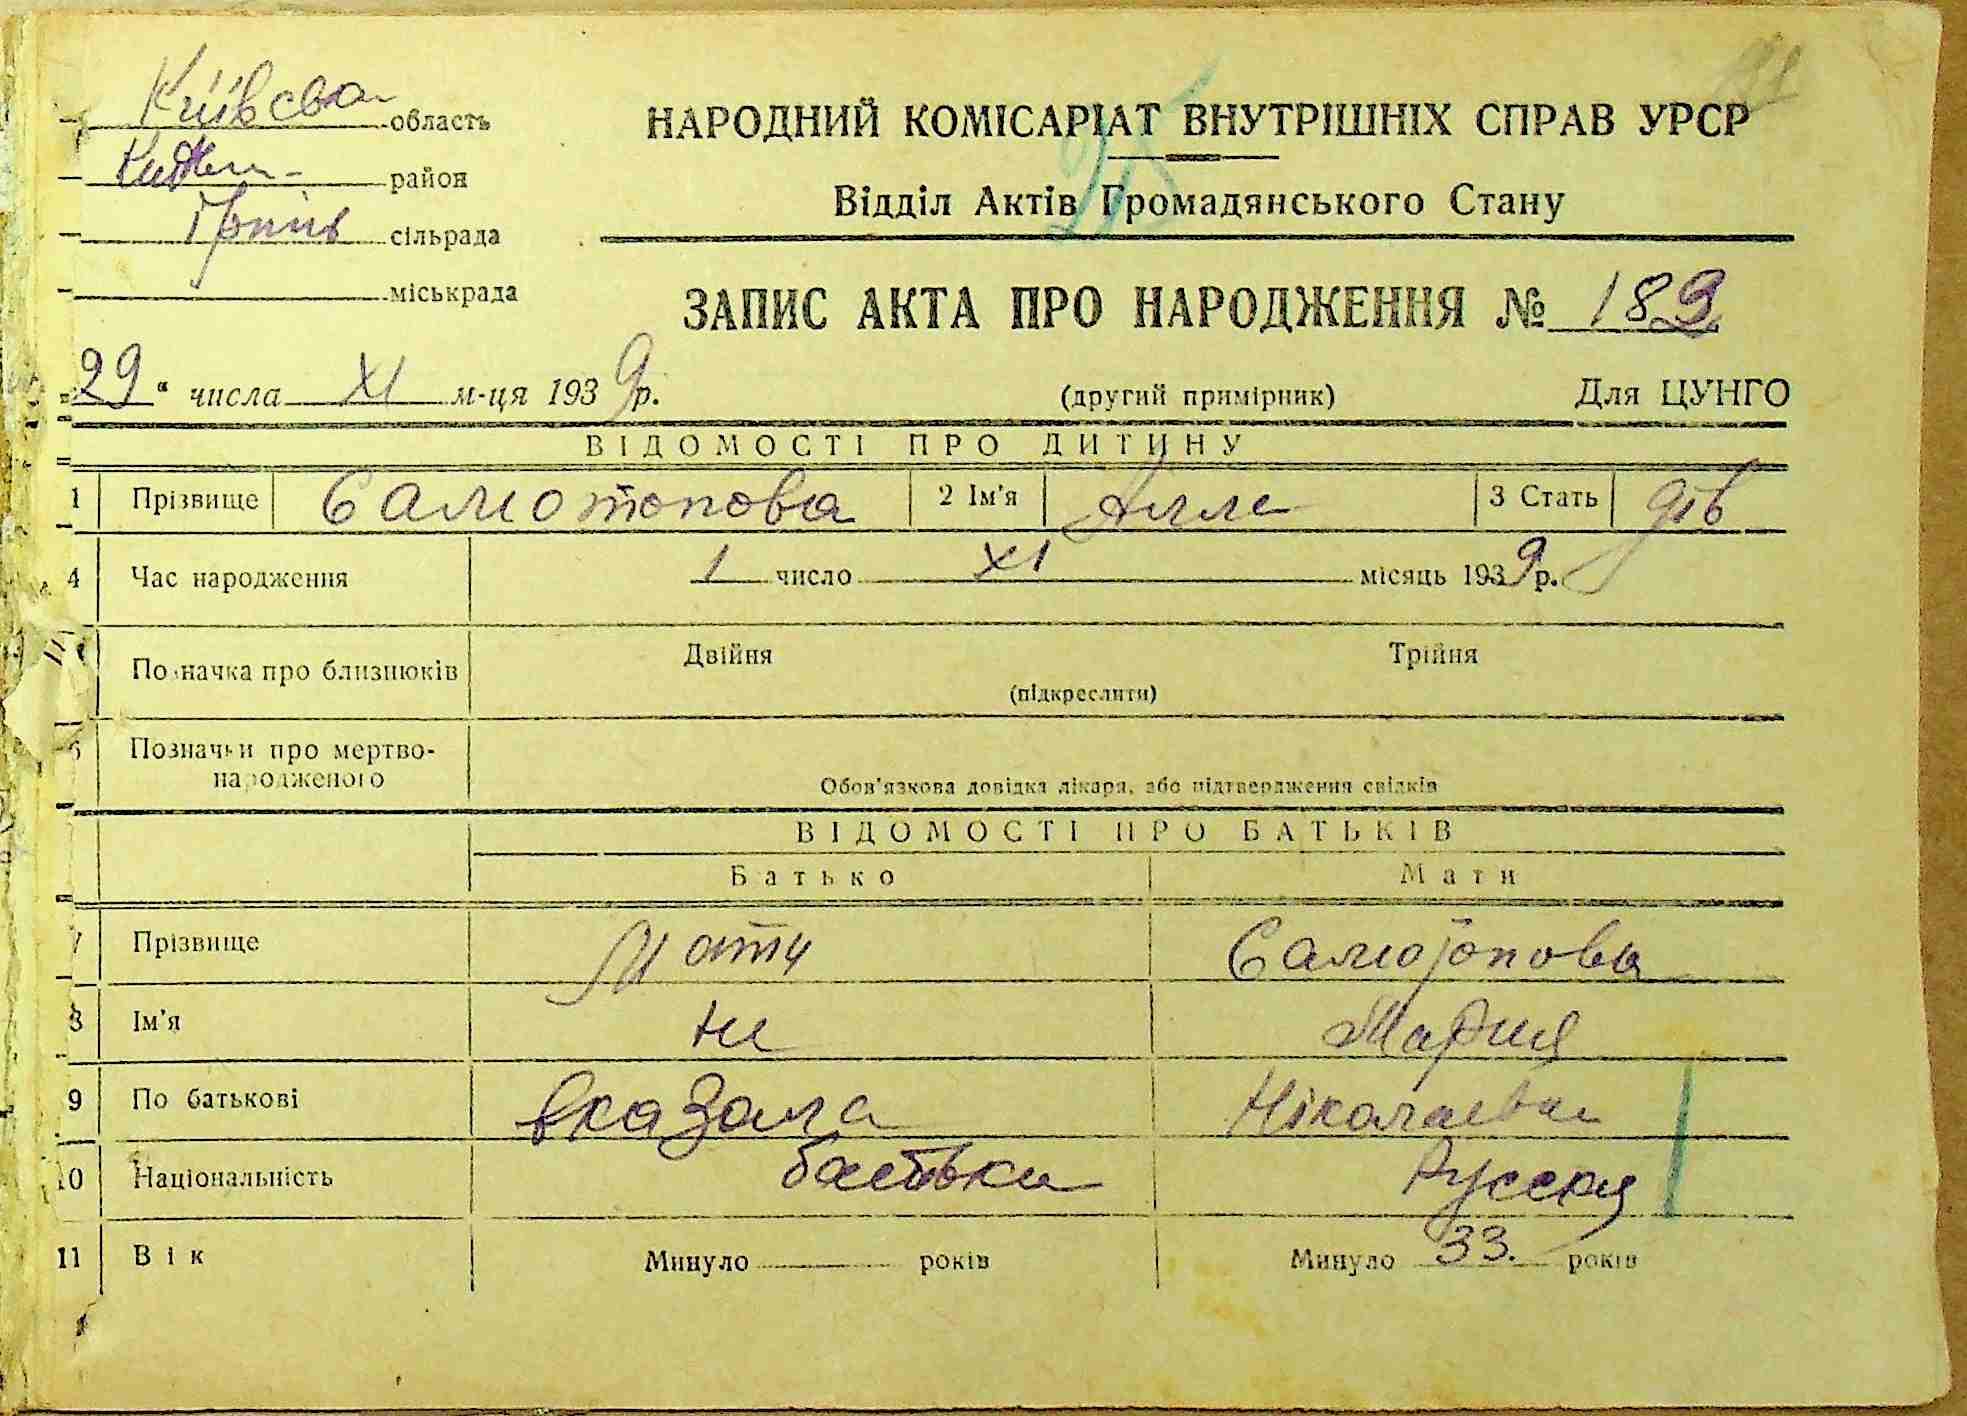 Київсва область
район
Ірпінь сільрада
міськрада
НАРОДНИЙ КОМІСАРІАТ ВНУТРІШНІХ СПРАВ УРСР
Відділ Актів Громадянського Стану
ЗАПИС АКТА ПРО НАРОДЖЕННЯ № 189
29 " числа XI м-ця 1939 р. (другий примірник) Для ЦУНГО
ВІДОМОСТІ ПРО ДИТИНУ
1 Прізвище Самотопова 2 Ім'я Алла 3 Стать дів
4 Час народження 1 число XI місяць 1939 р.
Позначка про близнюків Двійня Трійня
(підкреслити)
6 Позначки про мертво-
народженого Обов'язкова довідка лікаря, або підтвердження свідків
ВІДОМОСТІ ПРО БАТЬКІВ
Батько Мати
7 Прізвище Мати Самотопова
8 Ім'я не Мария
9 По батькові вказала Ніколаевна
10 Національність батька Русская
11 Вік Минуло років Минуло 33. років